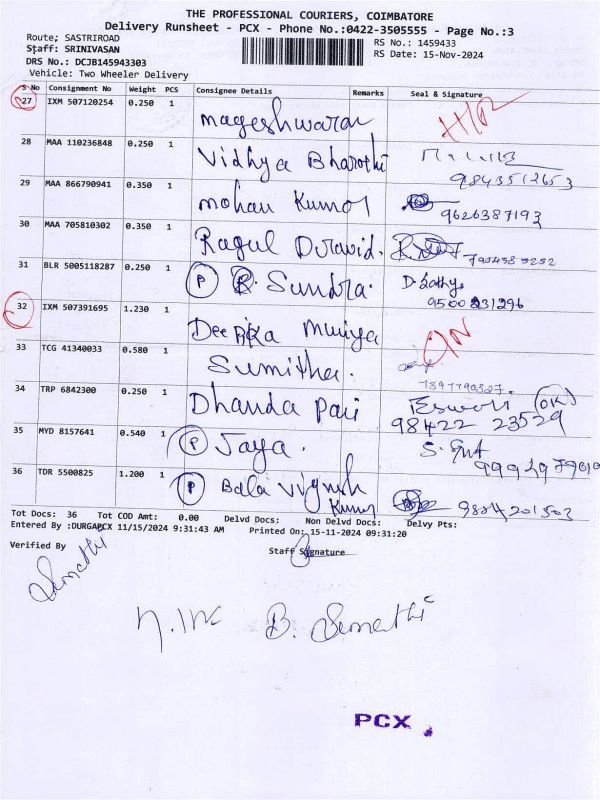 THE PROFESSIONAL COURIERS, COIMBATORE
Delivery Runsheet - PCX - Phone No.:0422-3505555 - Page No.:3
Route; SASTRIROAD
RS No.: 1459433
Staff: SRINIVASAN
RS Date: 15-Nov-2024
DRS No.: DCJB145943303
Vehicle: Two Wheeler Delivery
S No Consignment No Weight PCS Consignee Details Remarks Seal & Signature
27 IXM 507120254 0.250 1 Mageshwaran
28 MAA 110236848 0.250 1 Vidhya Bharathi
9843512653
29 MAA 866790941 0.350 1 Mohan Kumar
9626387193
30 MAA 705810302 0.350 1 Ragul Dravid.
31 BLR 5005118287 0.250 1 P R. Sundra. D. Sathya
9500231296
32 IXM 507391695 1.230 1 Deepika Muniya
33 TCG 41340033 0.580 1 Sumitha.
34 TRP 6842300 0.250 1 Dhanda Pani Eswari OK
98422 23529
35 MYD 8157641 0.540 1 P Jaya.
36 TDR 5500825 1.200 1 P Bala Vignesh Kumar 9884201503
Tot Docs: 36 Tot COD Amt: 0.00 Delvd Docs: Non Delvd Docs: Delvy Pts:
Entered By :DURGAPCX 11/15/2024 9:31:43 AM Printed On: 15-11-2024 09:31:20
Verified By Staff Signature
Sumathi
B. Sumathi
PCX